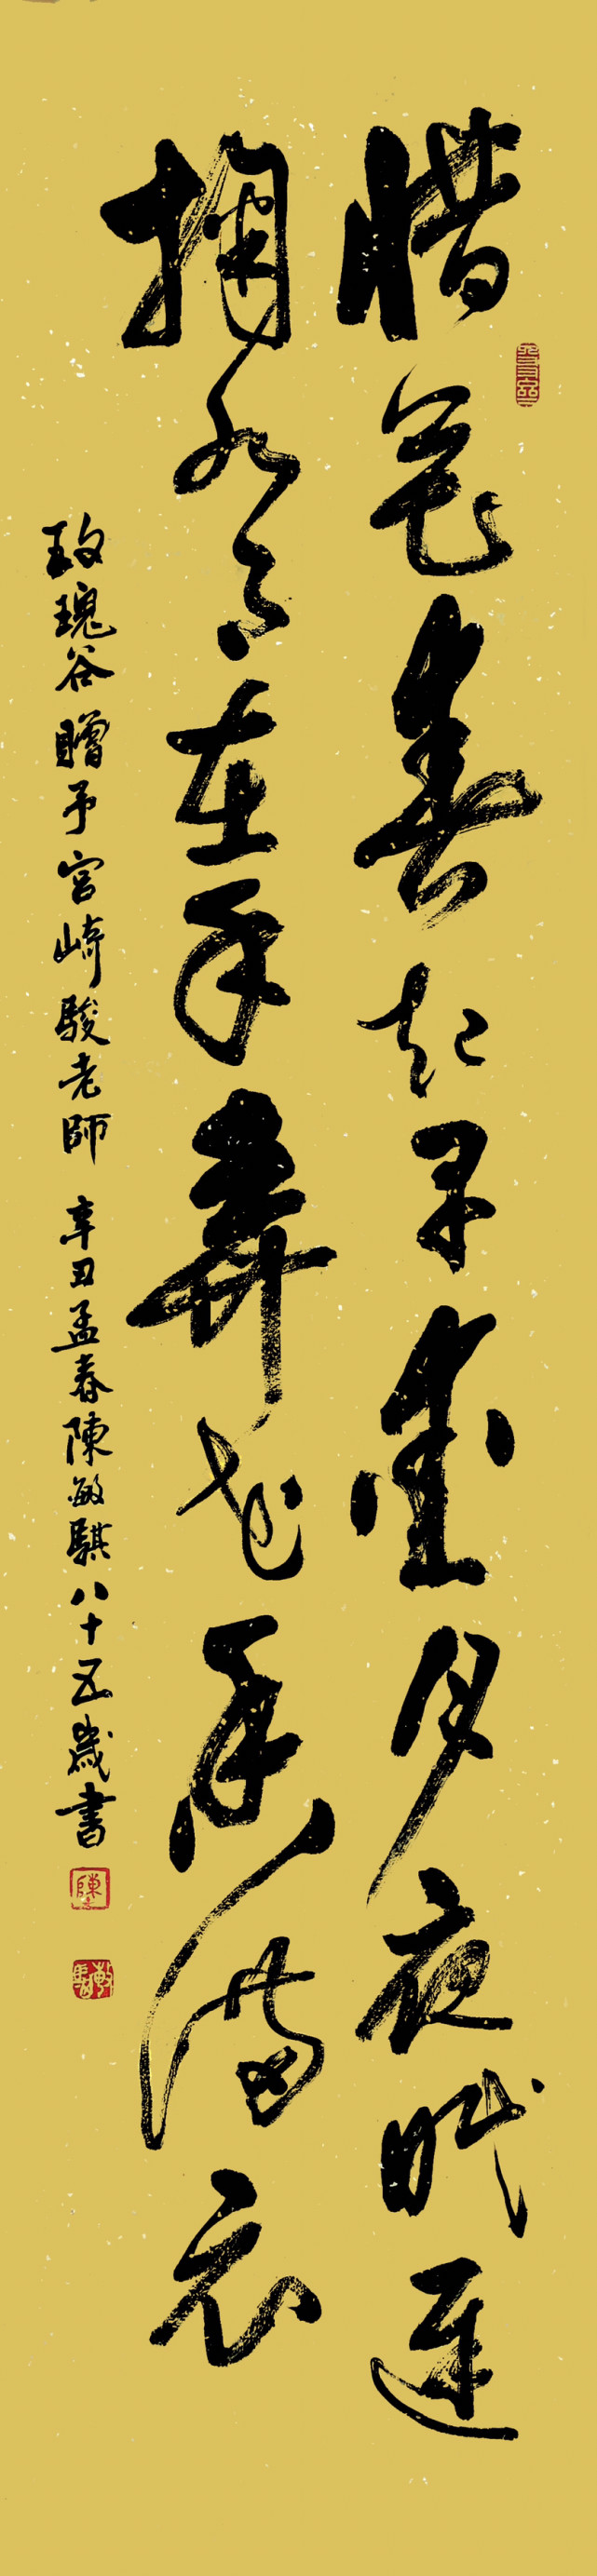 惜花春起早愛月夜眠遲
掬水月在手弄花香滿衣
玫瑰谷贈予宮崎駿老師 辛丑孟春陳敏騏八十五歲書
陳